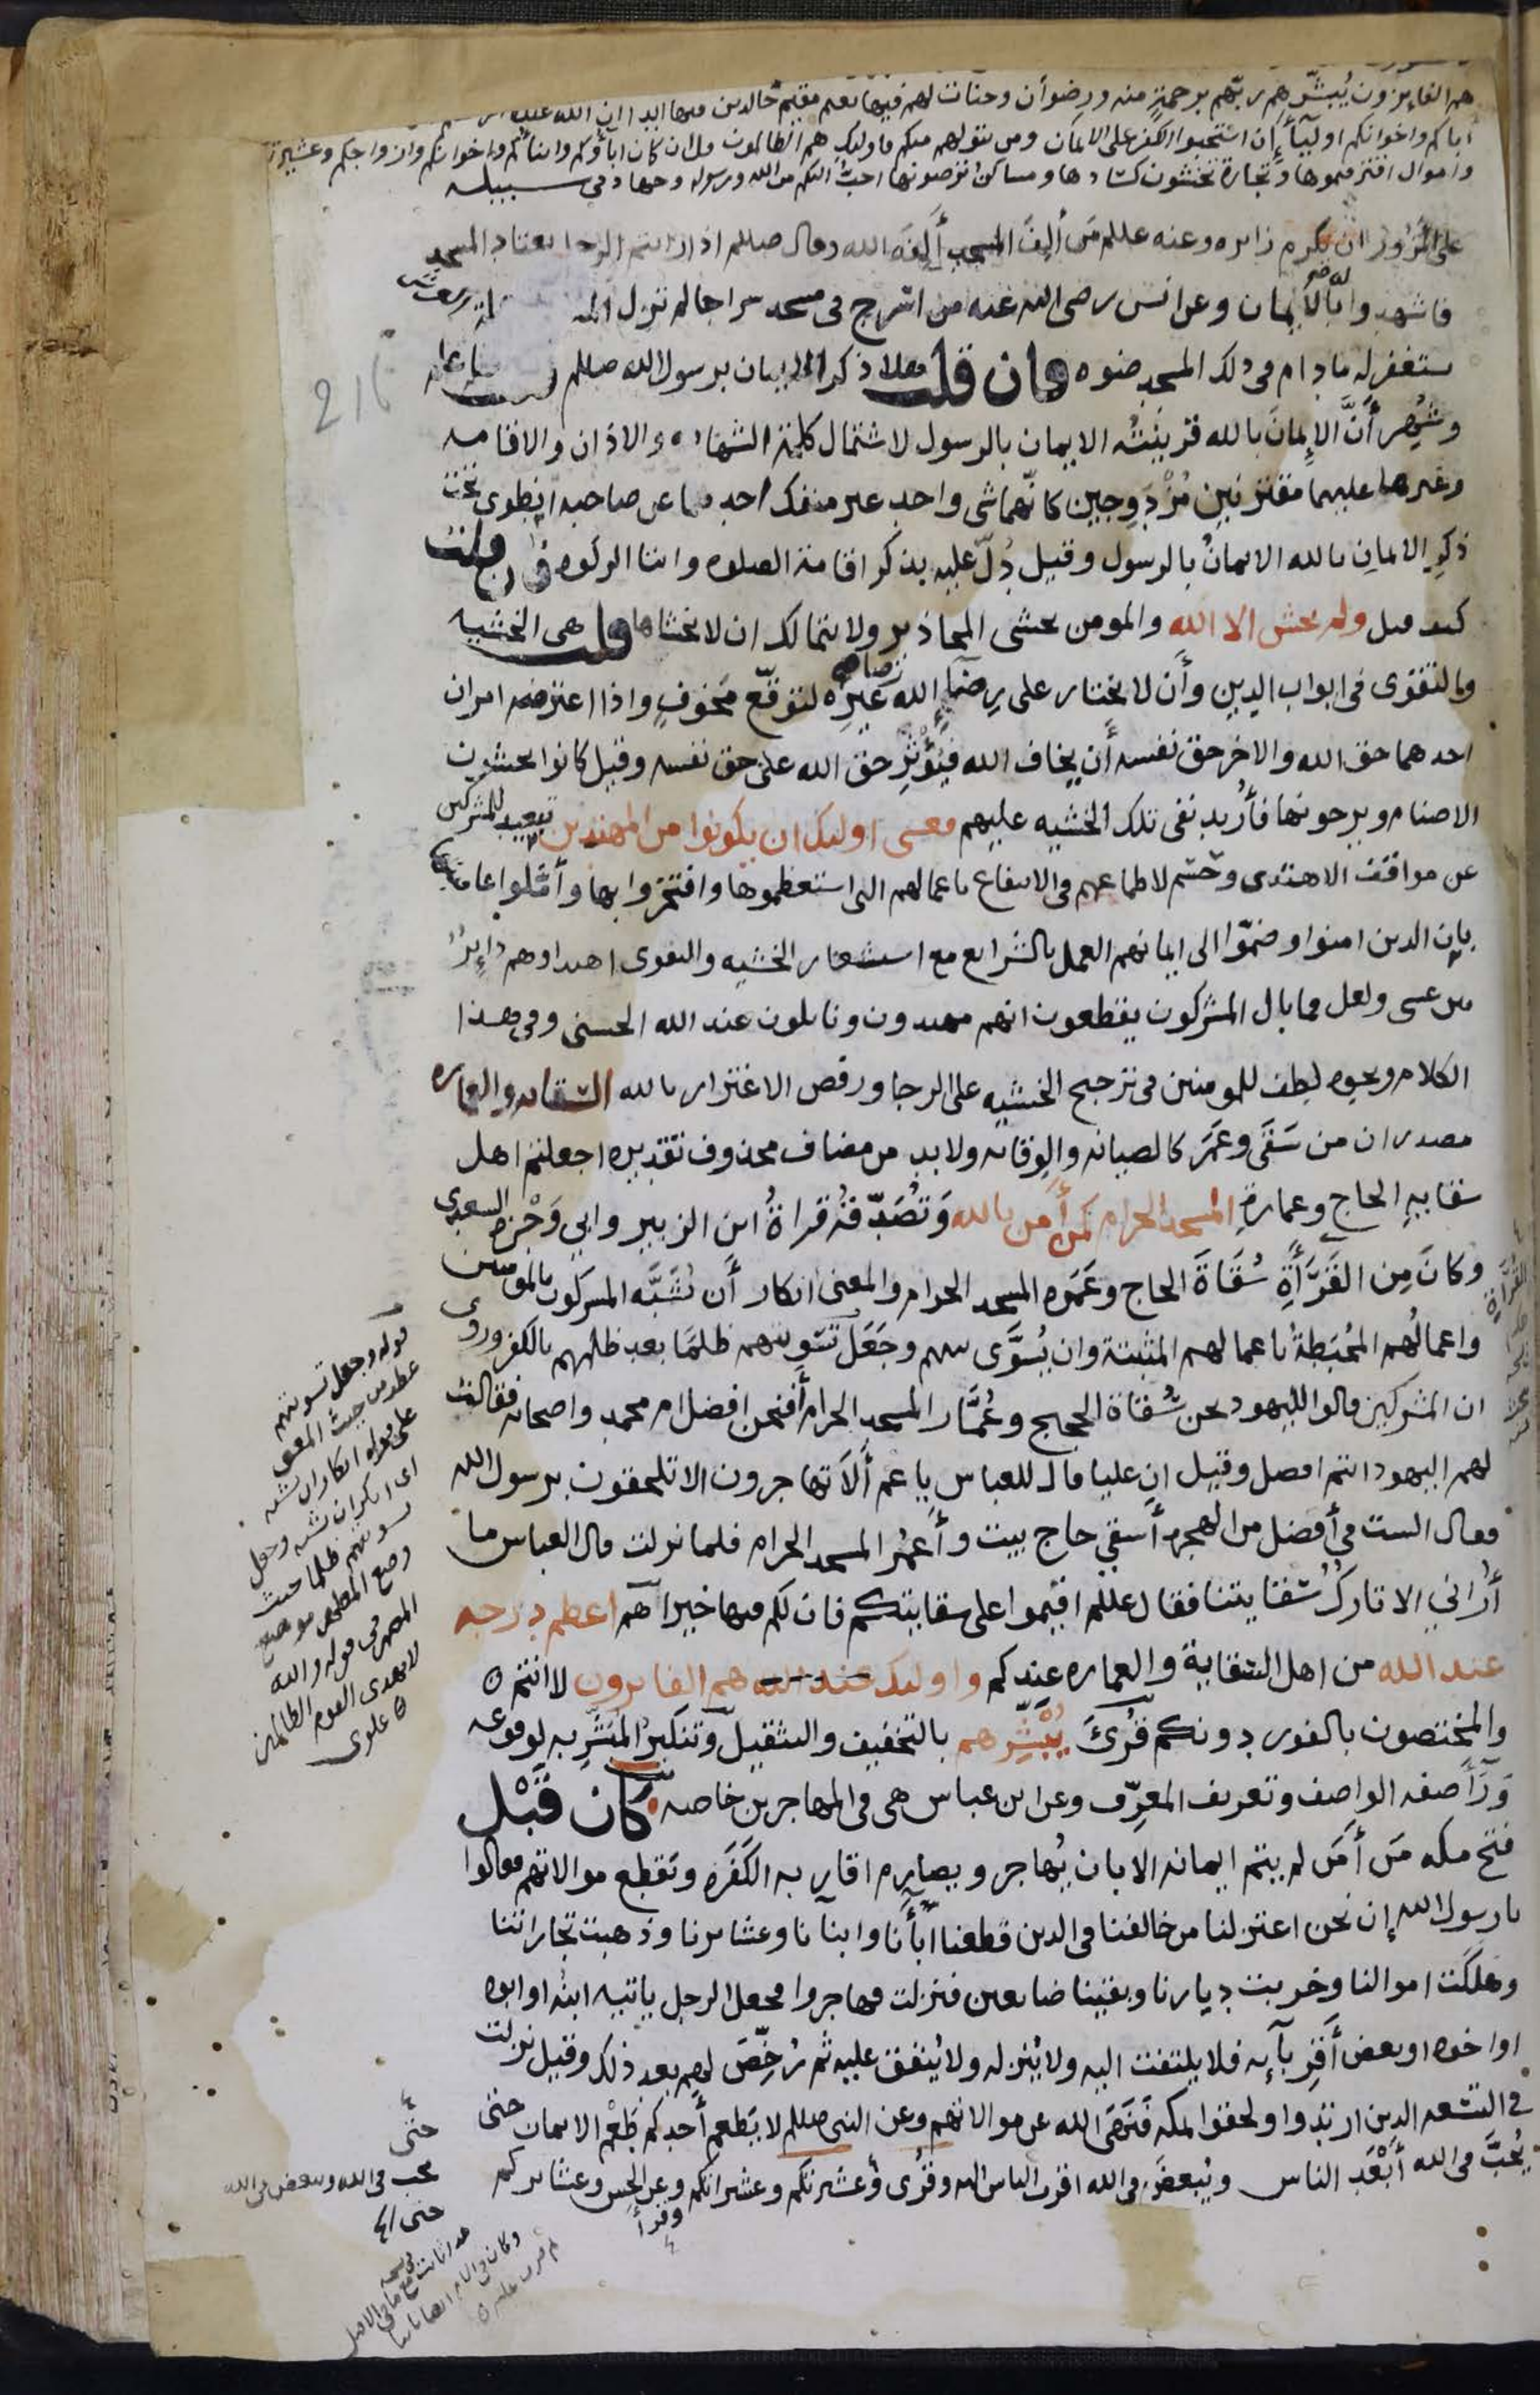 هم الفايزون يُبشّرهم ربّهم برحمةٍ منه ورضوان وجنات لهم فيها نعيم مقيم خالدين فيها ابدا ان الله عنده
أباكم واخوانكم اوليآأ إن استحبوا الكفر على الايمان ومن يتولهم منكم فاوليك هم الظالمون قل ان كان اباوكم وابناكم واخوانكم وازواجكم وعشيرتكم
واموال اقترفتموها وتجارة تخشون كسادها ومساكن ترضونها احبّ اليكم من الله ورسوله وجهاد في سبيله
على المَزُور ان يكرم زايره وعنه عللم من ألِفَ المسجد أَلِفَه الله وقال صللم اذا رايتم الرجل يعتاد المسجد
فاشهدوا له بالايمان وعن انس رضى الله عنه من اسرج في مسجد سراجا لم تزل الملائكة
ستغفر له مادام في ذلك المسجد ضوه فان قلت هلا ذكر الايمان برسول الله صللم
وشُهِر أنّ الإيمانَ بالله قرينتُه الايمان بالرسول لاشتمال كلمة الشهاده والاذان والاقامه
وغيرها عليهما مقترنين مُزْدَوِجين كانهما شى واحد غير منفك احدهما عن صاحبه انطوى تحت
ذكرِ الايمانِ بالله الايمانُ بالرسول وقيل دُلّ عليه بذكر اقامة الصلوه وايتا الزكوه فان قلت
كيف قيل ولم يخش الا الله والمومن يخشى المحاذير ولا يتمالك ان لا يخشاها قلت هي الخشيه
والتقوى في ابواب الدين وأن لا يختار على رِضَا الله رضا غَيرِه لتوقّع مَخوفٍ واذا اعترضه امران
احدهما حق الله والاخر حق نفسه أن يخاف الله فيُؤثِر حق الله على حق نفسه وقيل كانوا يخشون
الاصنام ويرجونها فأُريد نفى تلك الخشيه عليهم فعسى اوليك ان يكونوا من المهتدين تبعيد للمشركين
عن مواقف الاهتدى وحَسْم لاطماعهم في الانتفاع باعمالهم التي استعظموها وافتخروا بها وأمّلوا عاقبتها
بان الذين امنوا وضمّوا الى ايمانهم العمل بالشرايع مع استشعار الخشيه والتقوى اهتداوهم دايرٌ
بين عسى ولعل فما بال المشركون يقطعون انهم مهتدون ونايلون عند الله الحسنى وفي هذا
الكلام ونحوه لطف للمومنين في ترجيح الخشيه على الرجا ورفض الاغترار بالله السقايه والعماره
مصدران من سَقَى وعَمَر كالصيانه والوقايه ولا بد من مضاف محذوف تقديره اجعلتم اهل
سقايهِ الحاج وعمارةِ المسجد الحرام كمن أمن بالله وتُصَدّقه قراةُ ابن الزبير وابي وَجْزه السعدي
وكانَ مِن القَرَأَةِ سُقَاةَ الحاج وعَمَره المسجد الحرام والمعنى انكار أن يُشَبَّه المشركون بالمومنين
واعمالُهم المُحبَطةُ باعمالهم المثبتة وان يُسَوَّى بينهم وجَعَل تسويتهم ظلمًا بعد ظلمهم بالكفر وروى
ان المشركين قالوا لليهود نحن سُقاة الحجيج وعُمّار المسجد الحرام أفنحن افضل ام محمد واصحابه فقالت
لهم اليهود انتم افضل وقيل ان عليا قال للعباس يا عم أَلَا تهاجرون الا تلحقون برسول الله
فقال الست في أفضل من الهجره أسقي حاج بيت وأعمُر المسجد الحرام فلما نزلت قال العباس ما
أُراني الا تاركُ سقايتنا فقال عللم اقيموا على سقايتكم فان لكم فيها خيرا هم اعظم درجه
عند الله من اهل السقاية والعماره عندكم واوليك عند الله هم الفايزون لا انتم ه
والمختصون بالفوز دونكم قُرئَ يُبَشِّرهم بالتخفيف والتثقيل وتنكير المُبَشَّرِ به لوقوعه
وَرَأ صفه الواصف وتعريف المعرِّف وعن ابن عباس هى في المهاجرين خاصه كان قَبْل
فتح مكه مَن أمَن لم يتم ايمانه الا بان يُهاجر ويصارِم اقاربه الكَفَره وتقطع موالاتهم فقالوا
يا رسول الله إن نحن اعتزلنا من خالفنا في الدين قطعنا ابأنا وابنآنا وعشايرنا وذهبت تجاراتنا
وهلكت اموالنا وخربت ديارنا وبقينا ضايعين فنزلت فهاجروا فجعل الرجل ياتيه ابنُه او ابوه
او اخوه او بعض أقرِبآيه فلا يلتفت اليه ولا يُنزله ولا يُنفق عليه ثم رُخِّصَ لهم بعد ذلك وقيل نزلت
في التسعه الذين ارتدوا ولحقوا بمكه فَنهَى الله عن موالاتهم وعن النبى صللم لا يَطعم أحدكم طَعْم الايمان حتى
يُحبَّ في الله أَبْعَد الناس ويُبغضَ في الله اقرب الناس اليه وقُرى وعشيرتكم وعشيراتكم وعن الحسن وعشايركم
وقرأ
216
قوله وجعل تسويتهم
عطف من حيث المعنى
على قوله انكار ان تشبه
اى انكر ان تشبه وجعل
تسويتهم ظلما حيث
وضع المظهر موضع
المضمر في قوله والله
لا يهدى القوم الظالمين
ه علوى
حتّى
يحب في الله ويبغض في الله
حتى